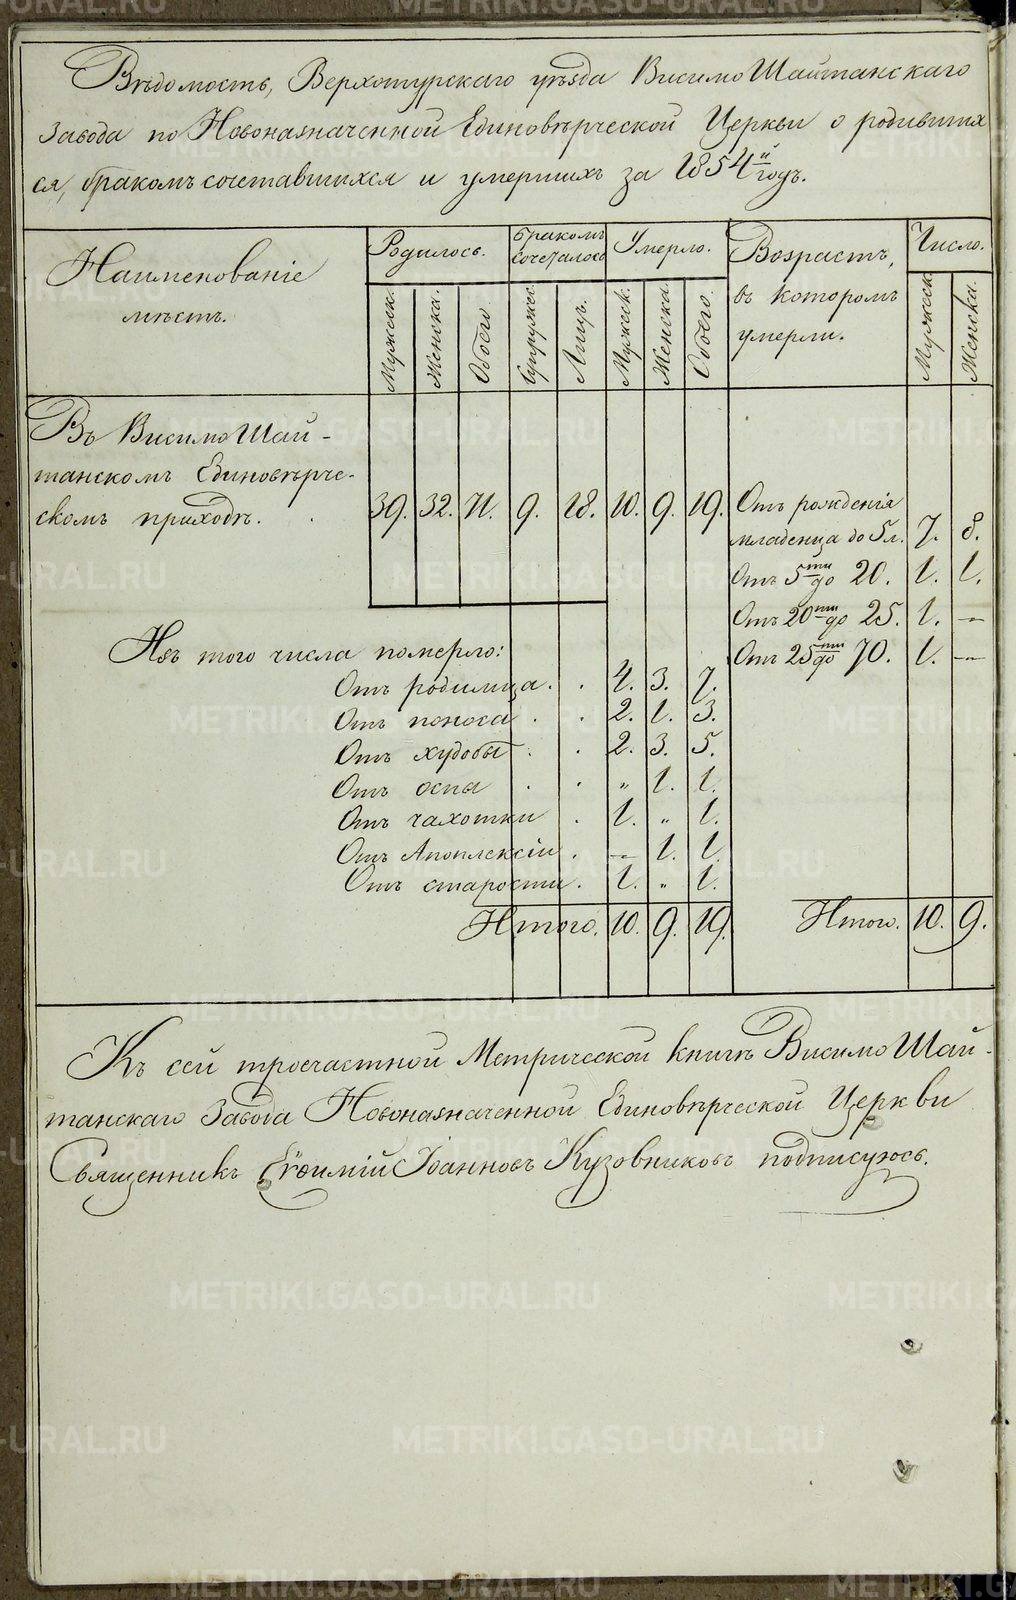 Вѣдомость, Верхотурскаго уѣзда Висимо Шайтанскаго
Завода по Новоназначенной Единовѣрческой Церкви о родивших
ся, бракомъ сочетавшихся и умершихъ за 1854й годъ.
Наименованіе мѣстъ.
Родилось.
Бракомъ сочеталось
Умерло.
Возрастъ, въ которомъ умерли.
Число.
Мужеск. Женска. Обоего Супружес. Лицъ. Мужеск. Женска. Обоего. Мужеск. Женска.
Въ Висимо Шай-
танскомъ Единовѣрче-
скомъ приходѣ. . 39. 32. 71. 9. 18. 10. 9. 19.
Отъ рожденія
младенца до 5 л. 7. 8.
Отъ 5ти до 20. 1. 1.
Отъ 20ти до 25. 1. —
Отъ 25ти до 70. 1. —
Изъ того числа померло:
Отъ родимца . . 4. 3. 7.
Отъ поноса . . 2. 1. 3.
Отъ худобы . . 2. 3. 5.
Отъ оспы . . „ 1. 1.
Отъ чахотки . 1. „ 1.
Отъ Апоплексіи . — 1. 1.
Отъ старости . 1. „ 1.
Итого. 10. 9. 19.
Итого. 10. 9.
Къ сей троечастной Метрической книгѣ Висимо Шай-
танскаго Завода Новоназначенной Единовѣрческой Церкви
Священникъ Евѳимій Іоанновъ Кузовниковъ подписуюсь.
METRIKI.GASO-URAL.RU